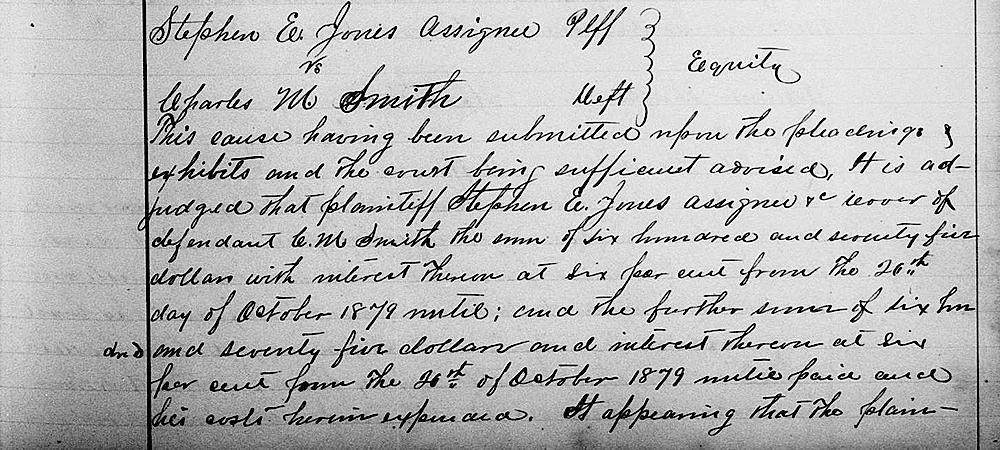 Stephen E. Jones Assignee Plff
vs Equity
Charles M Smith Deft
This cause having been submitted upon the pleadings &
exhibits and the court being sufficient advised, It is ad-
judged that plaintiff Stephen E. Jones assignee &c recover of
defendant C. M Smith the sum of six hundred and seventy five
dollars with interest thereon at six per cent from the 26th
day of October 1879 until; and the further sum of six hun
dred and seventy five dollars and interest thereon at six
per cent from the 26th of October 1879 until paid and
his costs herein expended. It appearing that the plain-